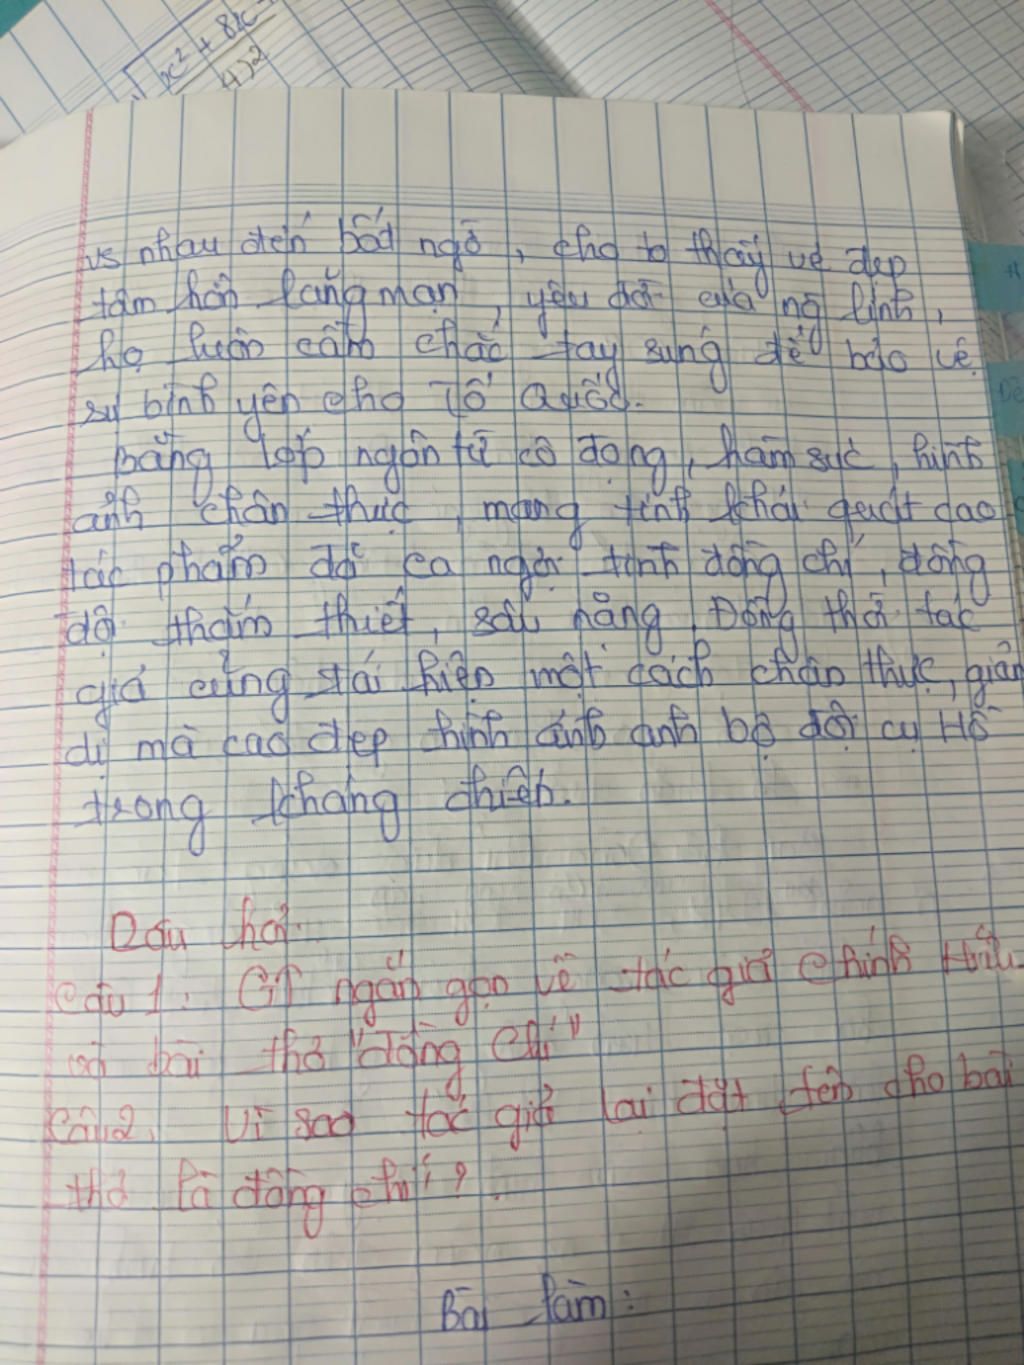 x² + 8x
4)2
vs nhau đến bất ngờ, cho ta thấy vẻ đẹp
tâm hồn lãng mạn, yêu đời của ng lính,
họ luôn cầm chắc tay súng để bảo vệ
sự bình yên cho Tổ Quốc.
bằng lớp ngôn từ cô đọng, hàm súc, hình
ảnh chân thực, mang tính khái quát cao
tác phẩm đã ca ngợi tình đồng chí, đồng
đội thắm thiết, sâu nặng. Đồng thời tác
giả cũng tái hiện một cách chân thực, giản
dị mà cao đẹp hình ảnh anh bộ đội cụ Hồ
trong kháng chiến.
Dấu hỏi.
Câu 1: GT ngắn gọn về tác giả Chính Hữu
và bài thơ "đồng Chí"
Câu 2. Vì sao tác giả lại đặt tên cho bài
thơ là đồng chí?
Bài làm: